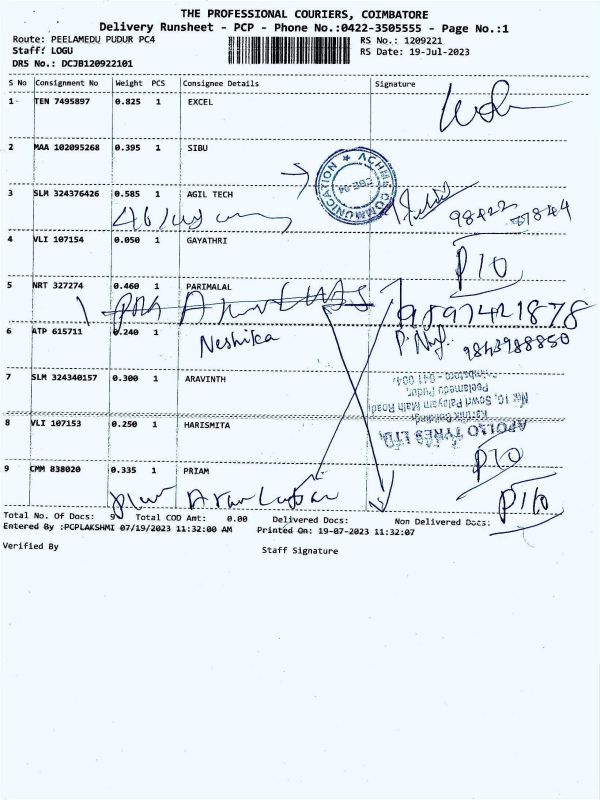 THE PROFESSIONAL COURIERS, COIMBATORE
Delivery Runsheet - PCP - Phone No.:0422-3505555 - Page No.:1
Route: PEELAMEDU PUDUR PC4 RS No.: 1209221
Staff: LOGU RS Date: 19-Jul-2023
DRS No.: DCJB120922101
S No Consignment No Weight PCS Consignee Details Signature
1 TEN 7495897 0.825 1 EXCEL
2 MAA 102095268 0.395 1 SIBU
ACHME COMMUNICATION
3 SLM 324376426 0.585 1 AGIL TECH
98422
4 VLI 107154 0.050 1 GAYATHRI
P10
5 NRT 327274 0.460 1 PARIMALAL
9897421878
6 ATP 615711 0.240 1
Neshika
9843988850
7 SLM 324340157 0.300 1 ARAVINTH
APOLLO TYRES LTD,
Karthik Building
No. 10, Sowri Palayam Main Road
Peelamedu Pudur,
Coimbatore - 641 004.
8 VLI 107153 0.250 1 HARISMITA
P10
9 CMM 838020 0.335 1 PRIAM
P10
Total No. Of Docs: 9 Total COD Amt: 0.00 Delivered Docs: Non Delivered Docs:
Entered By :PCPLAKSHMI 07/19/2023 11:32:00 AM Printed On: 19-07-2023 11:32:07
Verified By Staff Signature